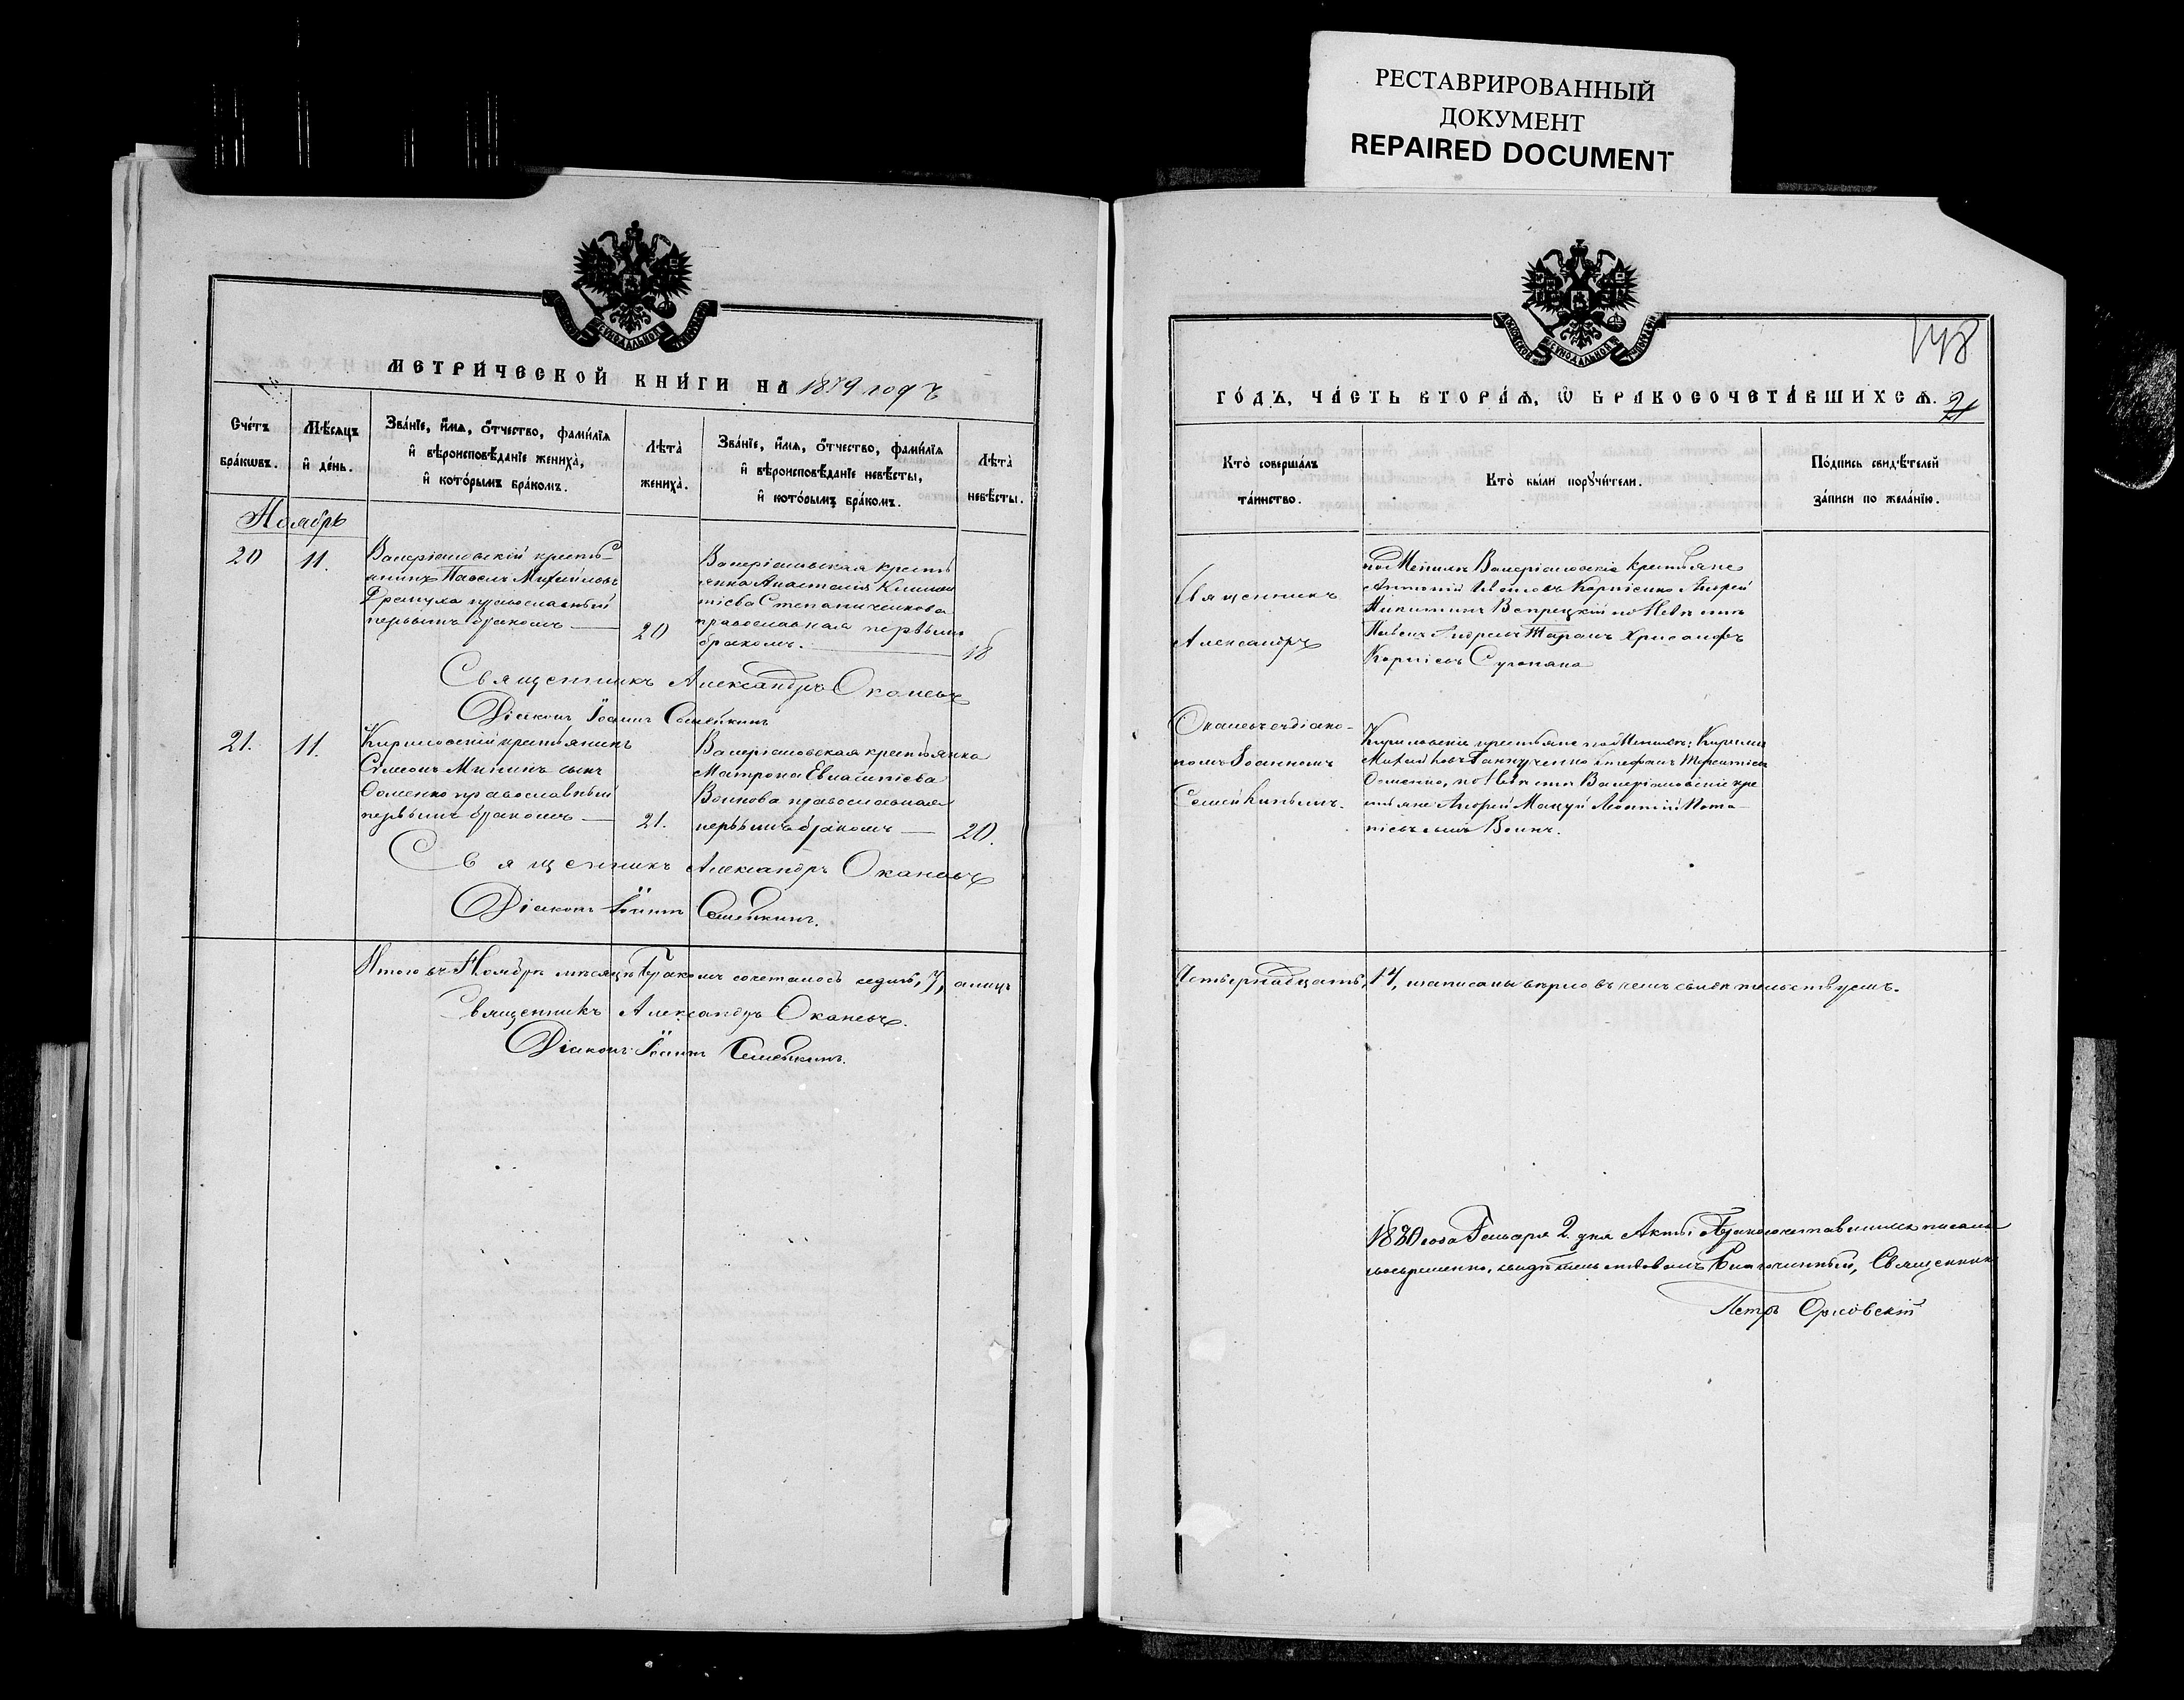 РЕСТАВРИРОВАННЫЙ
ДОКУМЕНТ
REPAIRED DOCUMENT
МЕТРИ́ЧЕСКОЙ КНИ́ГИ НА 1879 годъ
Сче́тъ бра́кѡвъ.
Мѣ́сяцъ и҆ де́нь.
Зва́нїе, и҆́мѧ, ѻ҆́тчество, фами́лїѧ и҆ вѣроисповѣ́данїе жениха̀, и҆ кото́рымъ бра́комъ.
Лѣта̀ жениха̀.
Зва́нїе, и҆́мѧ, ѻ҆́тчество, фами́лїѧ и҆ вѣроисповѣ́данїе невѣ́сты, и҆ кото́рымъ бра́комъ.
Лѣта̀ невѣ́сты.
Ноябрь
20
11.
Валеріановскій кресть-
янинъ Павелъ Михайловъ
православный
первымъ бракомъ
20
Валеріановская кресть
янка Анастасія Климен
тіева Степаниченкова
православная первымъ
бракомъ.
18
Священникъ Александръ Оканевъ
Діаконъ Іоаннъ Семейкинъ
21.
11.
Кириловскій крестьянинъ
Симеонъ Мининъ сынъ
православный
первымъ бракомъ
21.
Валеріановская крестьянка
Матрона
Воинова православная
первымъ бракомъ
20.
Священникъ Александръ Оканевъ
Діаконъ Іоаннъ Семейкинъ.
Итого въ Ноябрѣ мѣсяцѣ бракомъ сочеталось седмь, 7, а лицъ
Священникъ Александръ Оканевъ.
Діаконъ Іоаннъ Семейкинъ.
148
ГО́ДЪ, ЧА́СТЬ ВТОРА́Ѧ, Ѡ҆ БРАКОСОЧЕТА́ВШИХСѦ. 21
Кто̀ соверша́лъ та́инство.
Кто̀ бы́ли порꙋчи́тели.
По́дпись свидѣ́телей за́писи по жела́нїю.
Священникъ
Александръ
Оканевъ съ діако-
номъ Іоанномъ
Семейкинымъ.
по Женихѣ Валеріановскіе крестьяне
Антоній Корніенко Андрей
Никитинъ Вепрецкій по Невѣстѣ
Павелъ Андреевъ Таранъ Хрисанфъ
Корніевъ
Кириловскіе крестьяне по Женихѣ: Кириллъ
Михайловъ Ганнученко Стефанъ Терентіевъ
по Невѣстѣ Валеріановскіе кре
стьяне Андрей Мацуй Леонтій Пота-
піевъ сынъ Воинъ.
Четырнадцать, 14, записаны вѣрно въ чемъ свидѣтельствуемъ.
1880 года Генваря 2. дня Акты бракосочетавшихся писаны
своевременно, свидѣтельствовалъ Благочинный, Священникъ
Петръ Орловскій